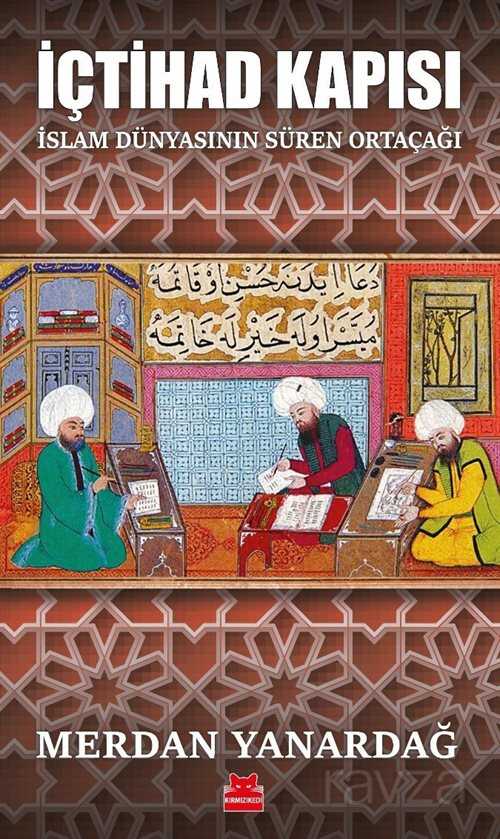 İÇTİHAD KAPISI
İSLAM DÜNYASININ SÜREN ORTAÇAĞI
دعا ايدنه حسن اوقاتمه
ميسر اوله خير له خاتمه
MERDAN YANARDAĞ
KIRMIZIKEDİ
ravza